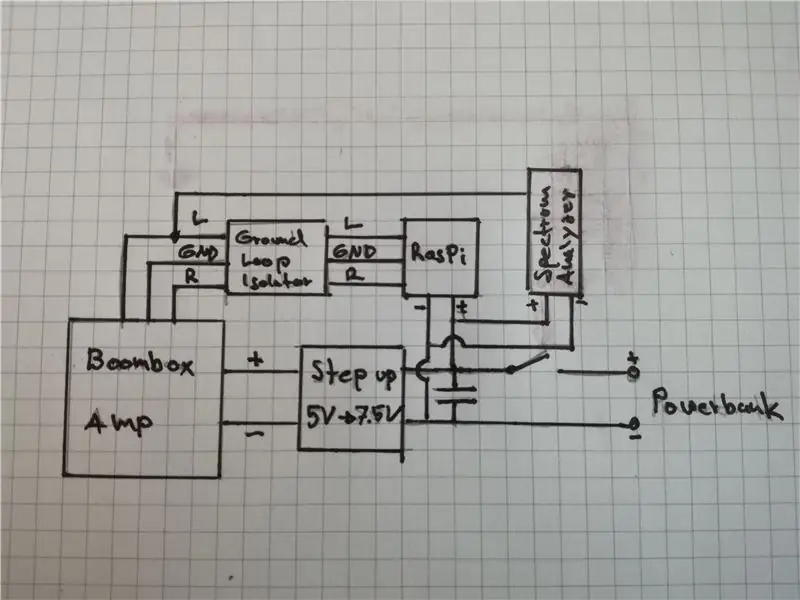 L
GND
R
Ground
Loop
Isolator
L
GND
R
RasPi
Spectrum
Analyzer
+ -
- +
Boombox
Amp
+
-
Step up
5V→7.5V
+
Powerbank
-